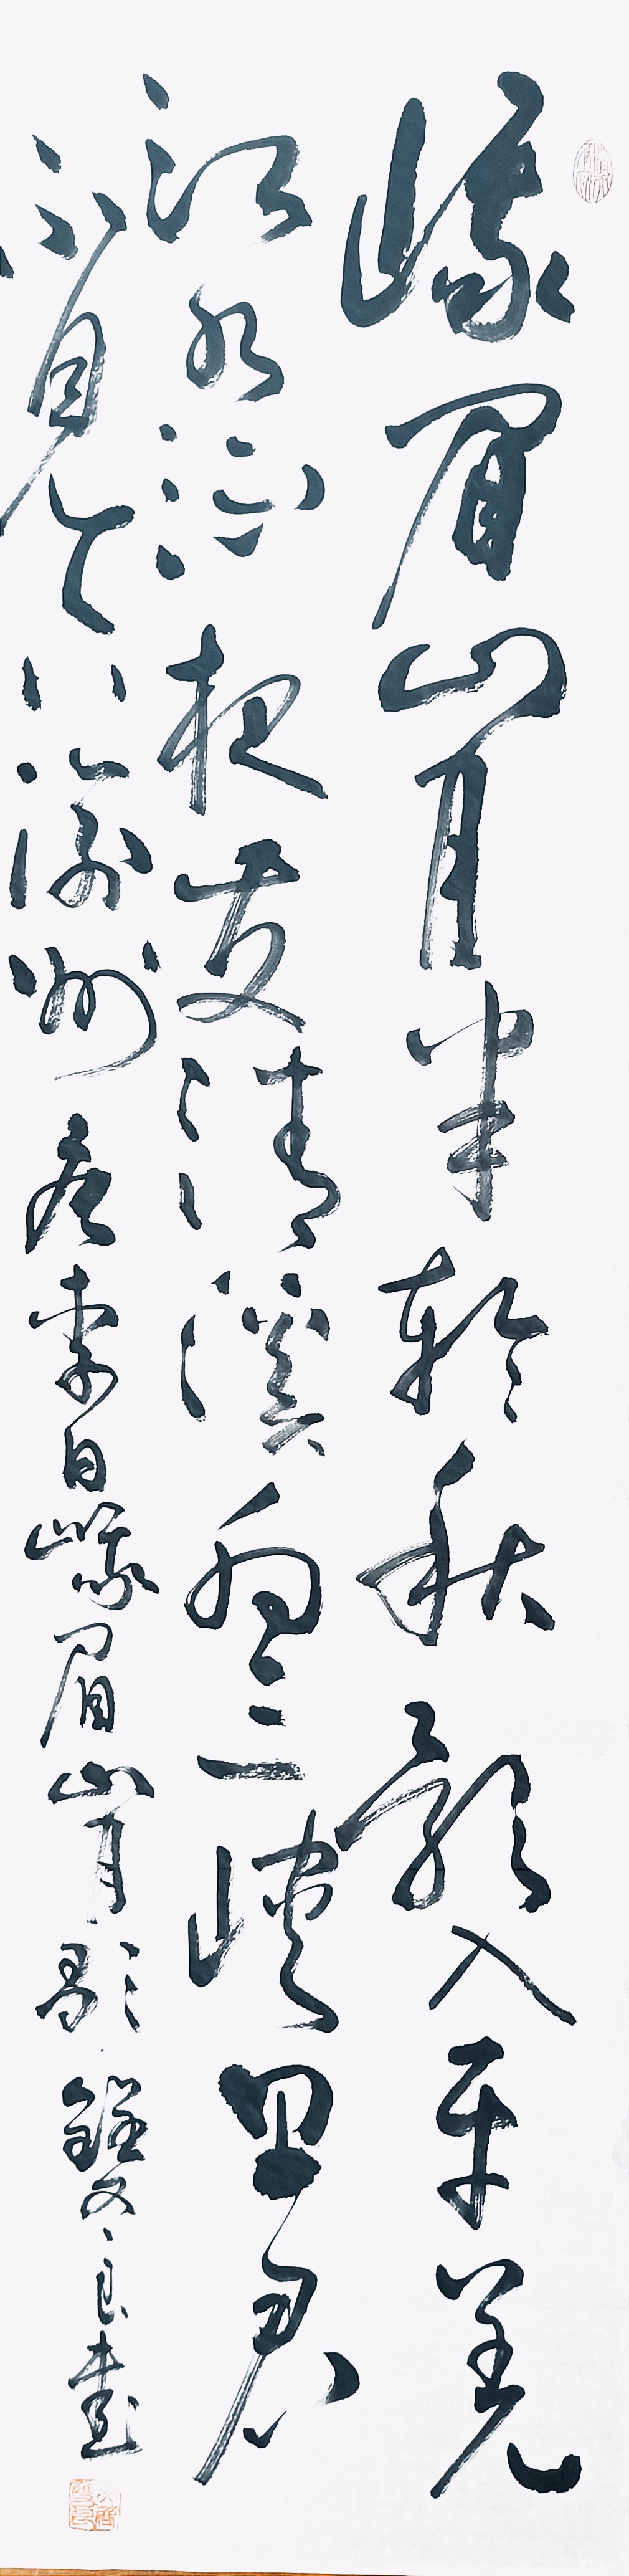 峨眉山月半輪秋影入平羌
江水流夜發清溪向三峽思君
不見下渝州唐李白峨眉山月歌雙良書